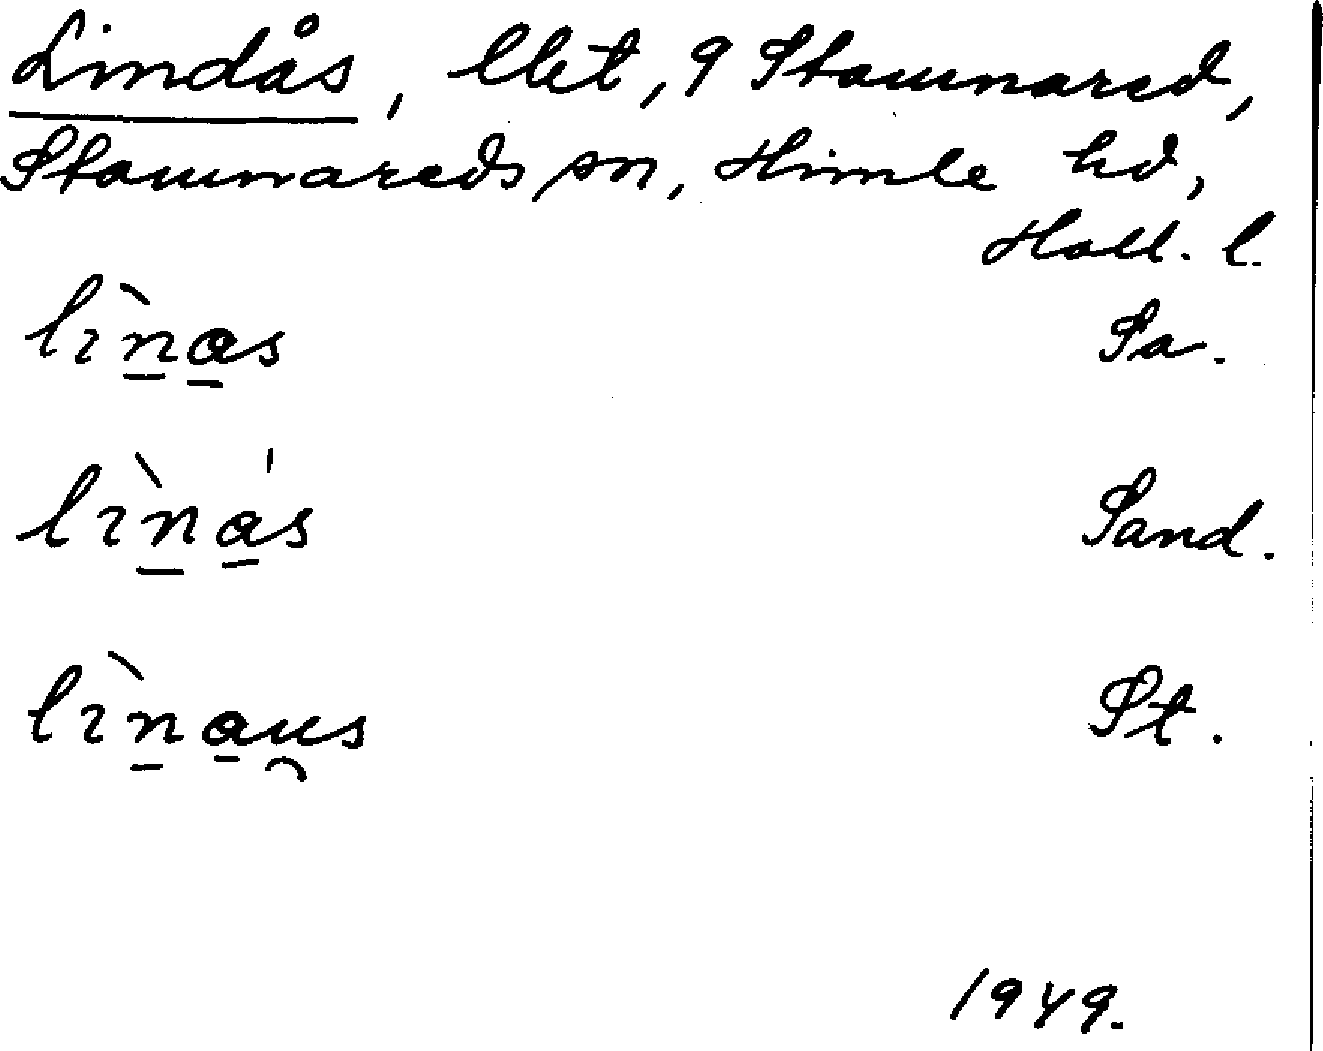 Lindås, lht, 9 Stamnared,
Stamnareds sn, Himle hd,
Hall. l.
lìnas Sa.
lìnás Sand.
lìnaus St.
1949.